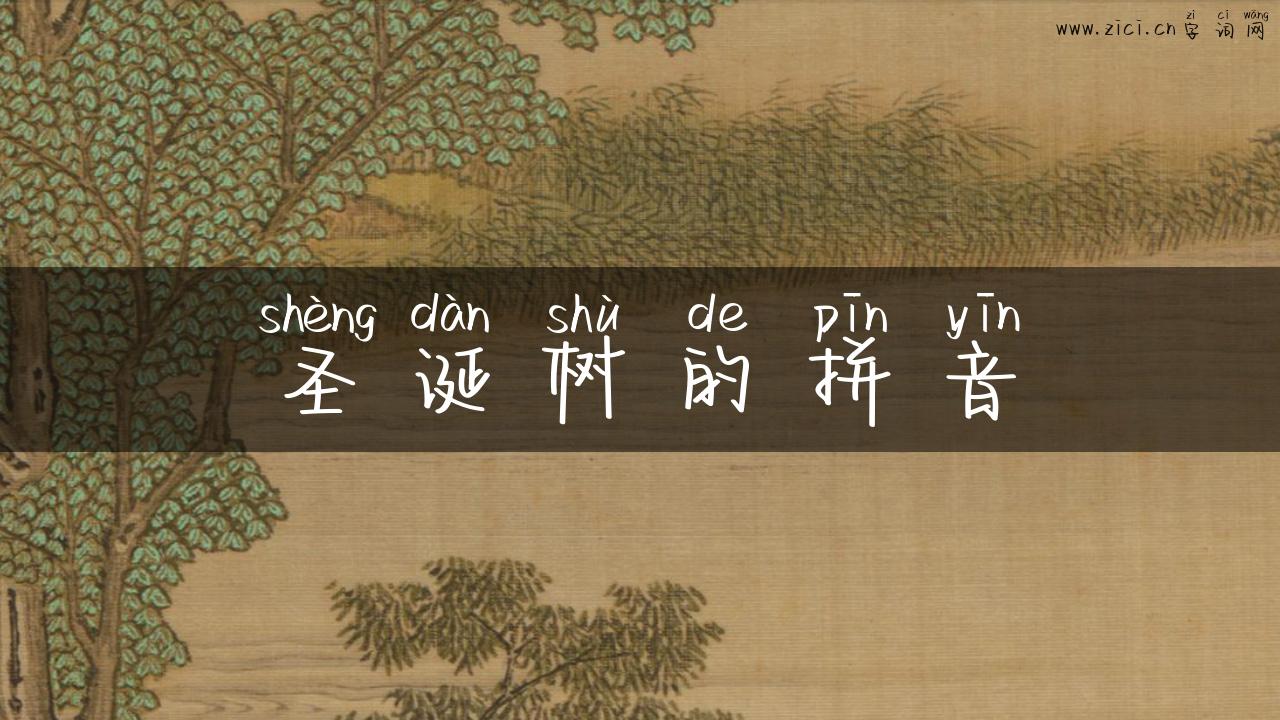 zì cí wǎng
www.zici.cn 字词网
shèng dàn shù de pīn yīn
圣诞树的拼音